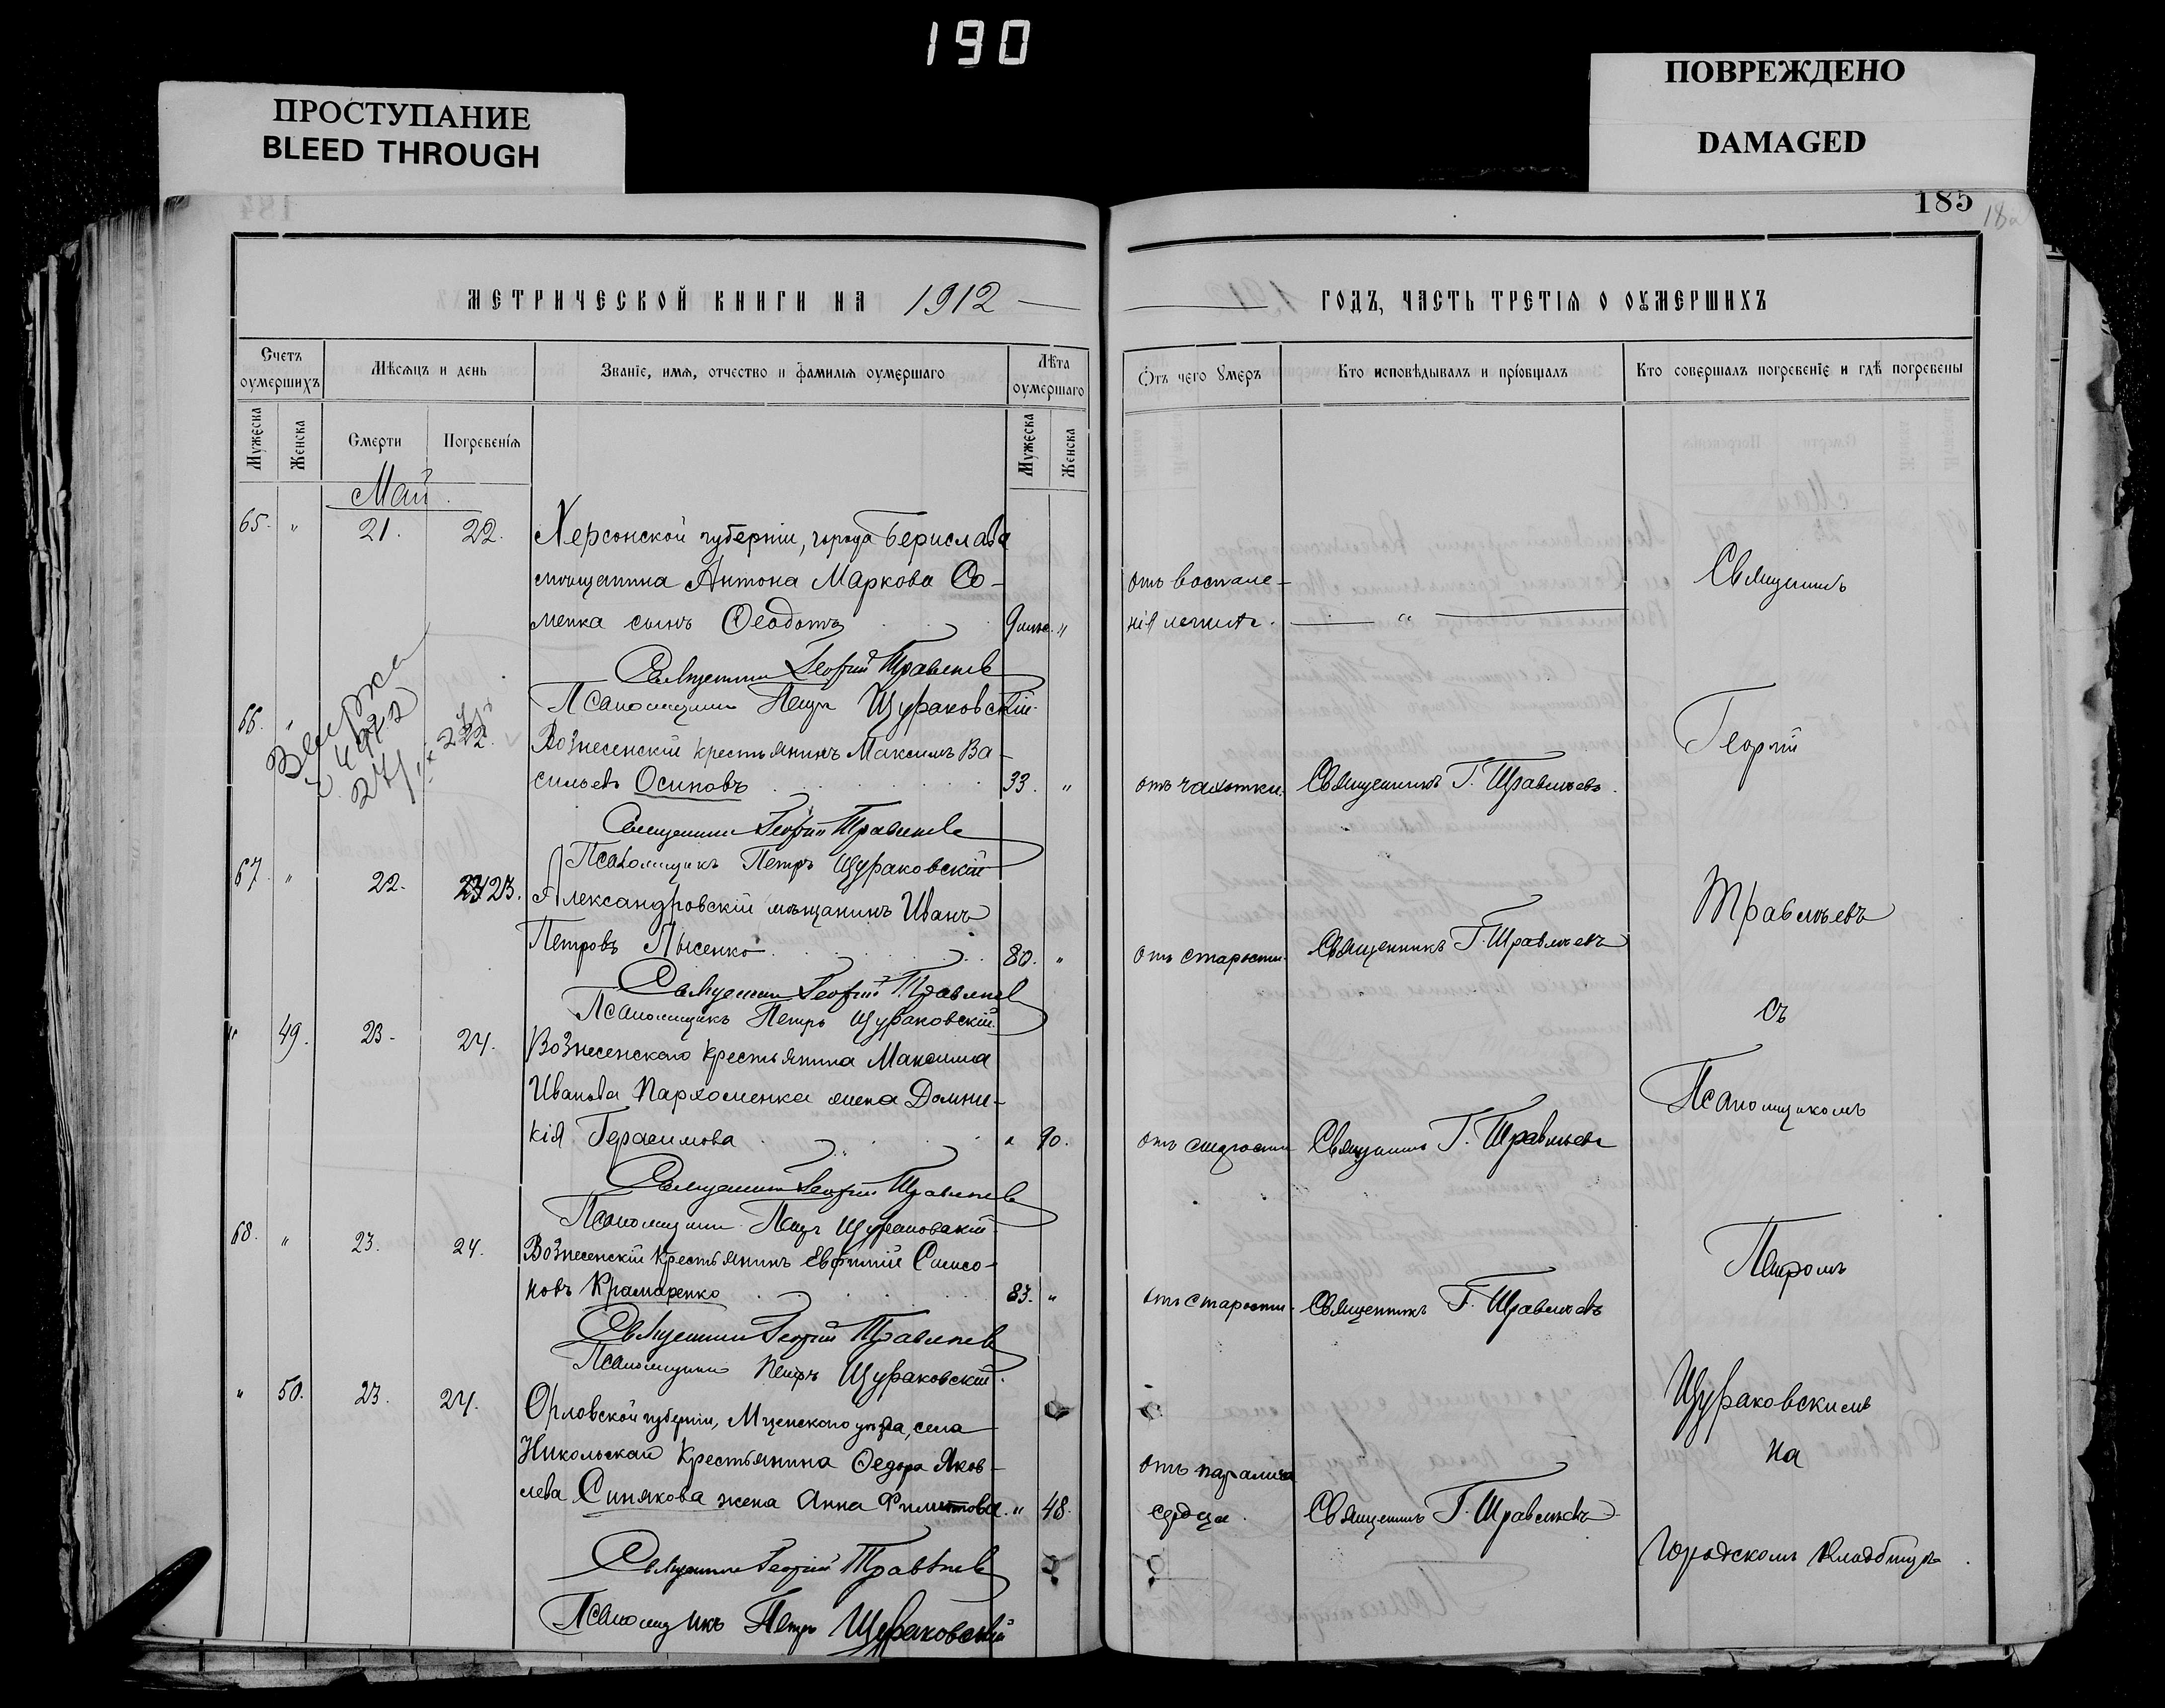 190
ПРОСТУПАНИЕ
BLEED THROUGH
ПОВРЕЖДЕНО
DAMAGED
185
МЕТРИЧЕСКОЙ КНИГИ НА 1912
Счетъ оумершихъ
Мѣсяцъ и день
Званіе, имя, отчество и фамилія оумершаго
Лѣта оумершаго
Мужеска
Женска
Смерти
Погребенія
Мужеска
Женска
Май
65. " 21. 22. Херсонской губерніи, города Берислава
мѣщанина Антона Маркова Со-
менка сынъ Ѳеодотъ 9 "
Священникъ Георгій Травлѣевъ
Псаломщикъ Петръ Щураковскій
66. " 22. Вознесенскій крестьянинъ Максимъ Ва-
сильевъ Осиповъ 33. "
Священникъ Георгій Травлѣевъ
Псаломщикъ Петръ Щураковскій
67. " 22. 23. Александровскій мѣщанинъ Иванъ
Петровъ Лысенко 80. "
Священникъ Георгій Травлѣевъ
Псаломщикъ Петръ Щураковскій
" 49. 23. 24. Вознесенскаго крестьянина Максима
Иванова Пархоменка жена Домни-
кія Герасимова " 90.
Священникъ Георгій Травлѣевъ
Псаломщикъ Петръ Щураковскій
68. " 23. 24. Вознесенскій крестьянинъ Евфимій Симсо-
новъ Крамаренко 83. "
Священникъ Георгій Травлѣевъ
Псаломщикъ Петръ Щураковскій
" 50. 23. 24. Орловской губерніи, Мценскаго уѣзда, села
Никольскаго крестьянина Ѳедора Яков-
лева Синякова жена Анна Филиппова. " 48.
Священникъ Георгій Травлѣевъ
Псаломщикъ Петръ Щураковскій
ГОДЪ, ЧАСТЬ ТРЕТІЯ О ОУМЕРШИХЪ
Отъ чего умеръ
Кто исповѣдывалъ и пріобщалъ
Кто совершалъ погребеніе и гдѣ погребены
отъ воспале-
нія легкихъ. "
отъ чахотки. Священникъ Г. Травлѣевъ.
отъ старости. Священникъ Г. Травлѣевъ
отъ старости Священникъ Г. Травлѣевъ
отъ старости. Священникъ Г. Травлѣевъ
отъ паралича
сердца. Священникъ Г. Травлѣевъ
Священникъ
Георгій
Травлѣевъ
съ
Псаломщикомъ
Петромъ
Щураковскимъ
на
Городскомъ кладбищѣ.